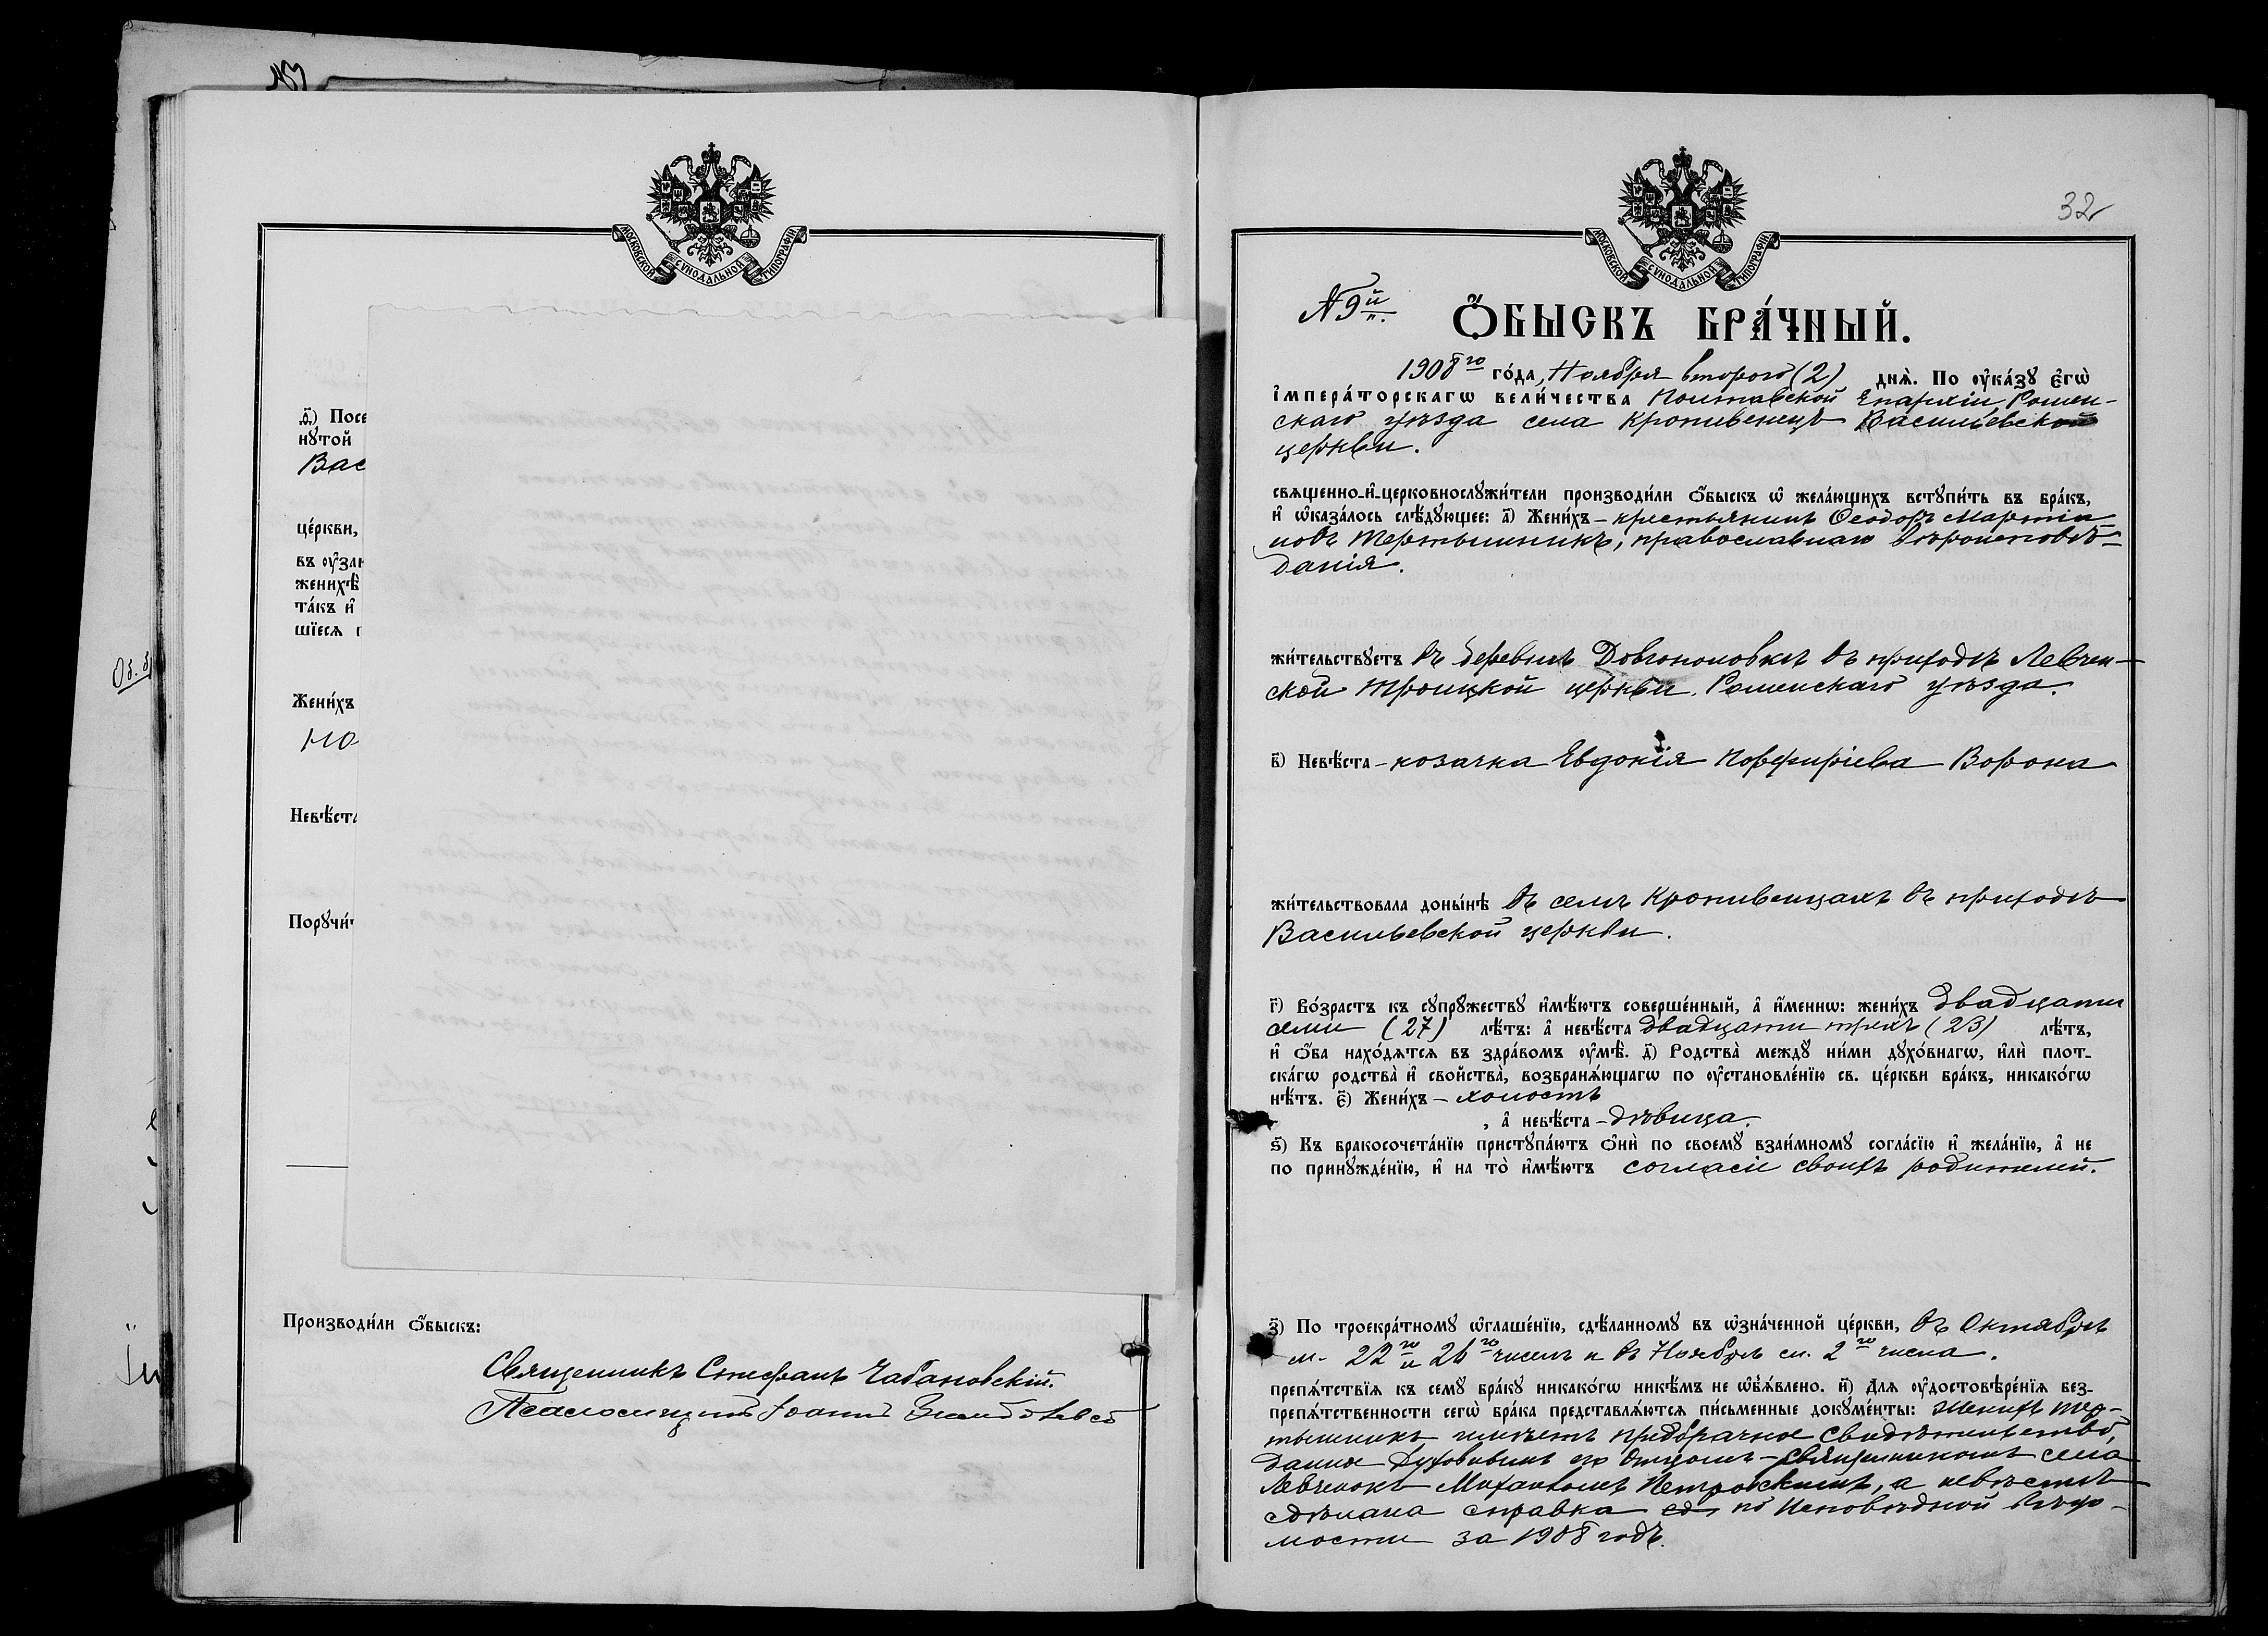 МОСКОВСКОЙ СѴНОДАЛЬНОЙ ТИПОГРАФІИ
д҃) Посе
нꙋтой
Вас
це́ркви,
въ ᲂу҆зак
женихѣ
та́къ и҆
шїеся п
Жени́хъ
Невѣ́ста
Порꙋчи́т
Производи́ли ѻ҆́быскъ:
Священникъ Стефанъ Чабановскій.
Псаломщикъ Іоаннъ
МОСКОВСКОЙ СѴНОДАЛЬНОЙ ТИПОГРАФІИ
32
№ 9й
Ѻ҆́БЫСКЪ БРА́ЧНЫЙ.
1908го го́да, Ноября второго (2) дня̀. По ᲂу҆ка́зꙋ є҆гѡ̀
і҆мпера́торскагѡ вели́чества Полтавской Епархіи, Ромен-
скаго уѣзда села Кропивенецъ Васильевской
церкви.
священно-и҆-церковнослꙋжи́тели производи́ли ѻ҆́быскъ ѡ҆ жела́ющихъ встꙋпи́ть въ бра́къ,
и҆ ѡ҆каза́лось слѣ́дꙋющее: а҃) Жени́хъ - крестьянинъ Ѳеодоръ Мартіи-
новъ Тертышникъ, православнаго вѣроисповѣ-
данія.
жи́тельствꙋетъ въ деревнѣ Довгополовкѣ въ приходѣ Левчен-
ской Троицкой церкви, Роменскаго уѣзда.
в҃) Невѣ́ста - козачка Евдокія Порфиріева Ворона
жи́тельствовала доны́нѣ въ селѣ Кропивенцахъ въ приходѣ
Васильевской церкви.
г҃) Во́зрастъ къ сꙋпрꙋ́жествꙋ и҆мѣ́ютъ соверше́нный, а҆ и҆́меннѡ: жени́хъ двадцати
семи (27) лѣ́тъ: а҆ невѣ́ста двадцати трехъ (23) лѣ́тъ,
и҆ ѻ҆́ба нахо́дятся въ здра́вомъ ᲂу҆мѣ̀. д҃) Родства̀ междꙋ ни́ми дꙋхо́внагѡ, и҆лѝ плот-
ска́гѡ родства̀ и҆ свойства̀, возбраня́ющагѡ по ᲂу҆становле́нїю св. це́ркви бра́къ, никако́гѡ
нѣ́тъ. є҃) Жени́хъ - холостъ
, а҆ невѣ́ста - дѣвица.
ѕ҃) Къ бракосочета́нїю пристꙋпа́ютъ ѻ҆нѝ по своемꙋ̀ взаи́мномꙋ согла́сїю и҆ жела́нїю, а҆ не
по принꙋжде́нїю, и҆ на то̀ и҆мѣ́ютъ согласіе своихъ родителей.
з҃) По троекра́тномꙋ ѡ҆глаше́нїю, сдѣ́ланномꙋ въ ѡ҆зна́ченной це́ркви, въ Октябрѣ
м. 22го и 26го чиселъ и въ Ноябрѣ м. 2го числа.
препя́тствїя къ семꙋ̀ бра́кꙋ никако́гѡ никѣ́мъ не ѡ҆б̾я́влено. и҃) Для ᲂу҆достовѣре́нїя без-
препя́тственности сегѡ̀ бра́ка представля́ются пи́сьменные докꙋме́нты: Женихъ Тер-
тышникъ имѣетъ предбрачное свидѣтельство,
данное Духовнымъ его Отцомъ - священникомъ села
Левченокъ Михаиломъ Петровскимъ, а невѣстѣ
сдѣлана справка по Исповѣдной вѣдо-
мости за 1908 годъ.